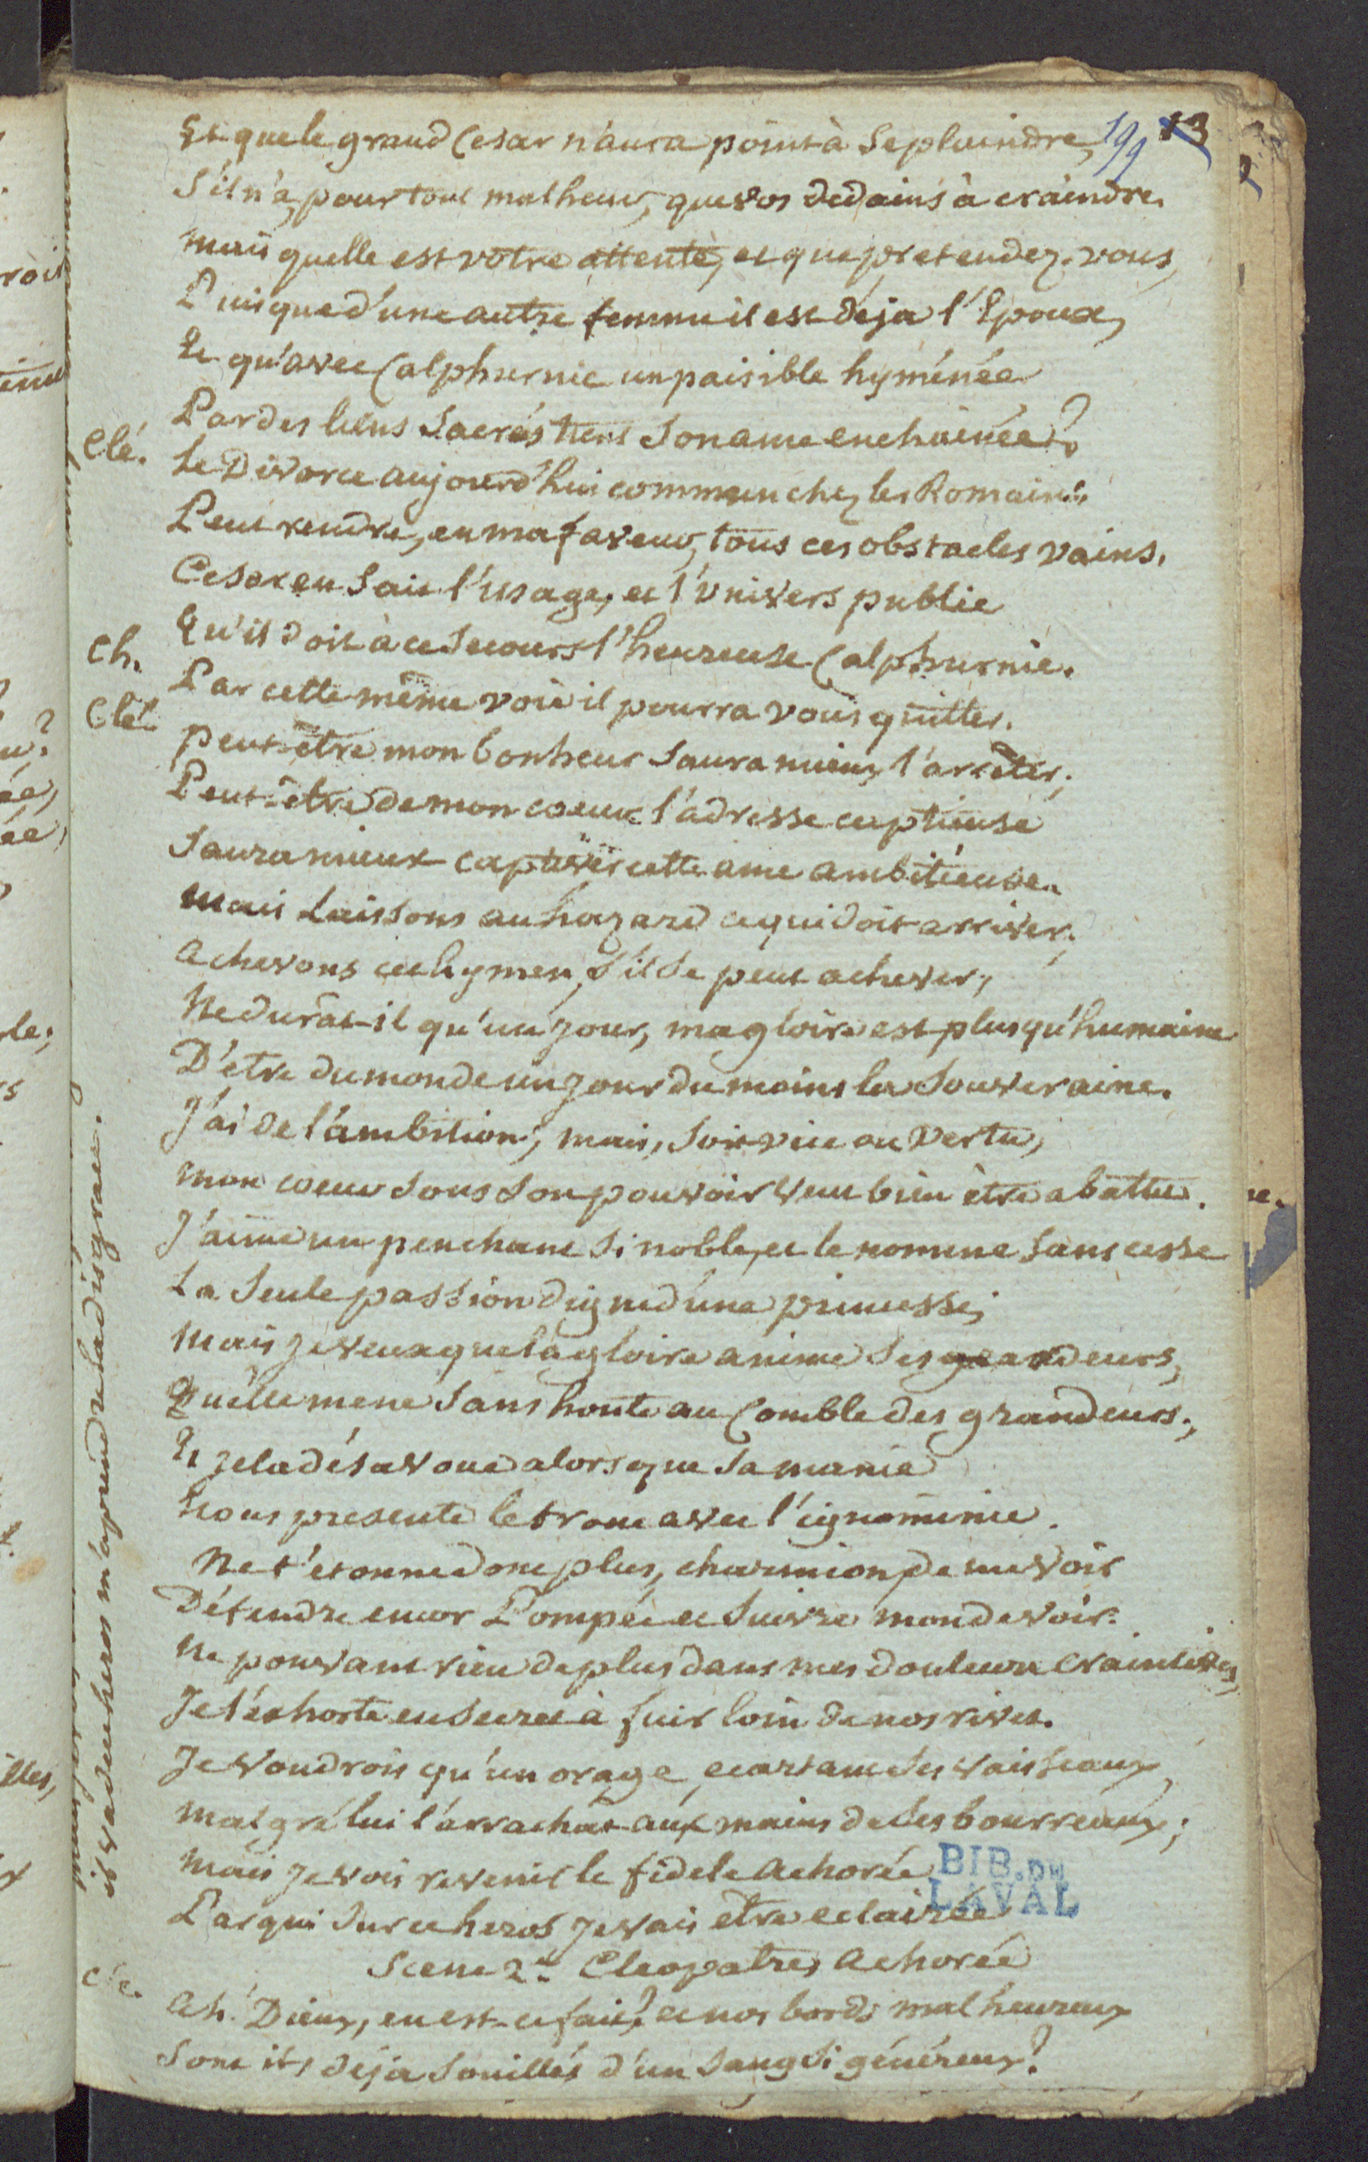 199 13
Et que le grand Cesar n'aura point à se plaindre,
S'il n'a, pour tout malheur, que vos dedains à craindre.
mais quelle est votre attente, et que pretendez-vous,
Puisque d'une autre femme il est deja l'Epoux,
Et qu'avec Calphurnie un paisible hyménée
Par des liens sacrés tient son ame enchainée?
Clé. Le Divorce aujourd'hui commun chez les Romains,
Peut rendre, en ma faveur, tous ces obstacles vains.
Cesar en sait l'usage, et l'Univers publie
Qu'il doit à ce secours l'heureuse Calphurnie.
Ch. Par cette même voie il pourra vous quitter.
Clé. peut-être mon bonheur saura mieux l'arrêter;
Peut-être de mon coeur l'adresse captieuse
Saura mieux captiver cette ame ambitieuse.
Mais laissons au hazard ce qui doit arriver;
achevons cet hymen, s'il se peut achever;
Ne durât-il qu'un jour, ma gloire est plus qu'humaine
D'être du monde un jour du moins la Souveraine.
J'ai de l'ambition; mais, soit vice ou vertu,
mon coeur sous son pouvoir veut bien être abattu.
J'aime un penchant si noble, et le nomme sans cesse
La seule passion digne d'une princesse;
Mais je veux que la gloire anime ses grandeurs,
Qu'elle mene sans honte au Comble des grandeurs;
Et je la désavoue alors que sa manie
Nous presente le trone avec l'ignominie.
Ne t'étonne donc plus, charmion, de me voir
Défendre encor Pompée et suivre mon devoir.
Ne pouvant rien de plus dans mes douleurs craintives,
Je l'exhorte en secret à fuir loin de nos rives.
Je voudrois qu'un orage, écartant ses vaisseaux,
malgré lui l'arrachat aux mains de ses bourreaux;
Mais je vois revenir le fidele Achorée
Par qui sur ce heros je vais être eclairée
BIB. DE LAVAL
Scene 2e. Cleopatre, Achorée
Cle. Ah! Dieux, en est-ce fait? et nos bords malheureux
Sont ils déja souillés d'un sang si généreux?
il va d'un heros m'aprendre la disgrace.